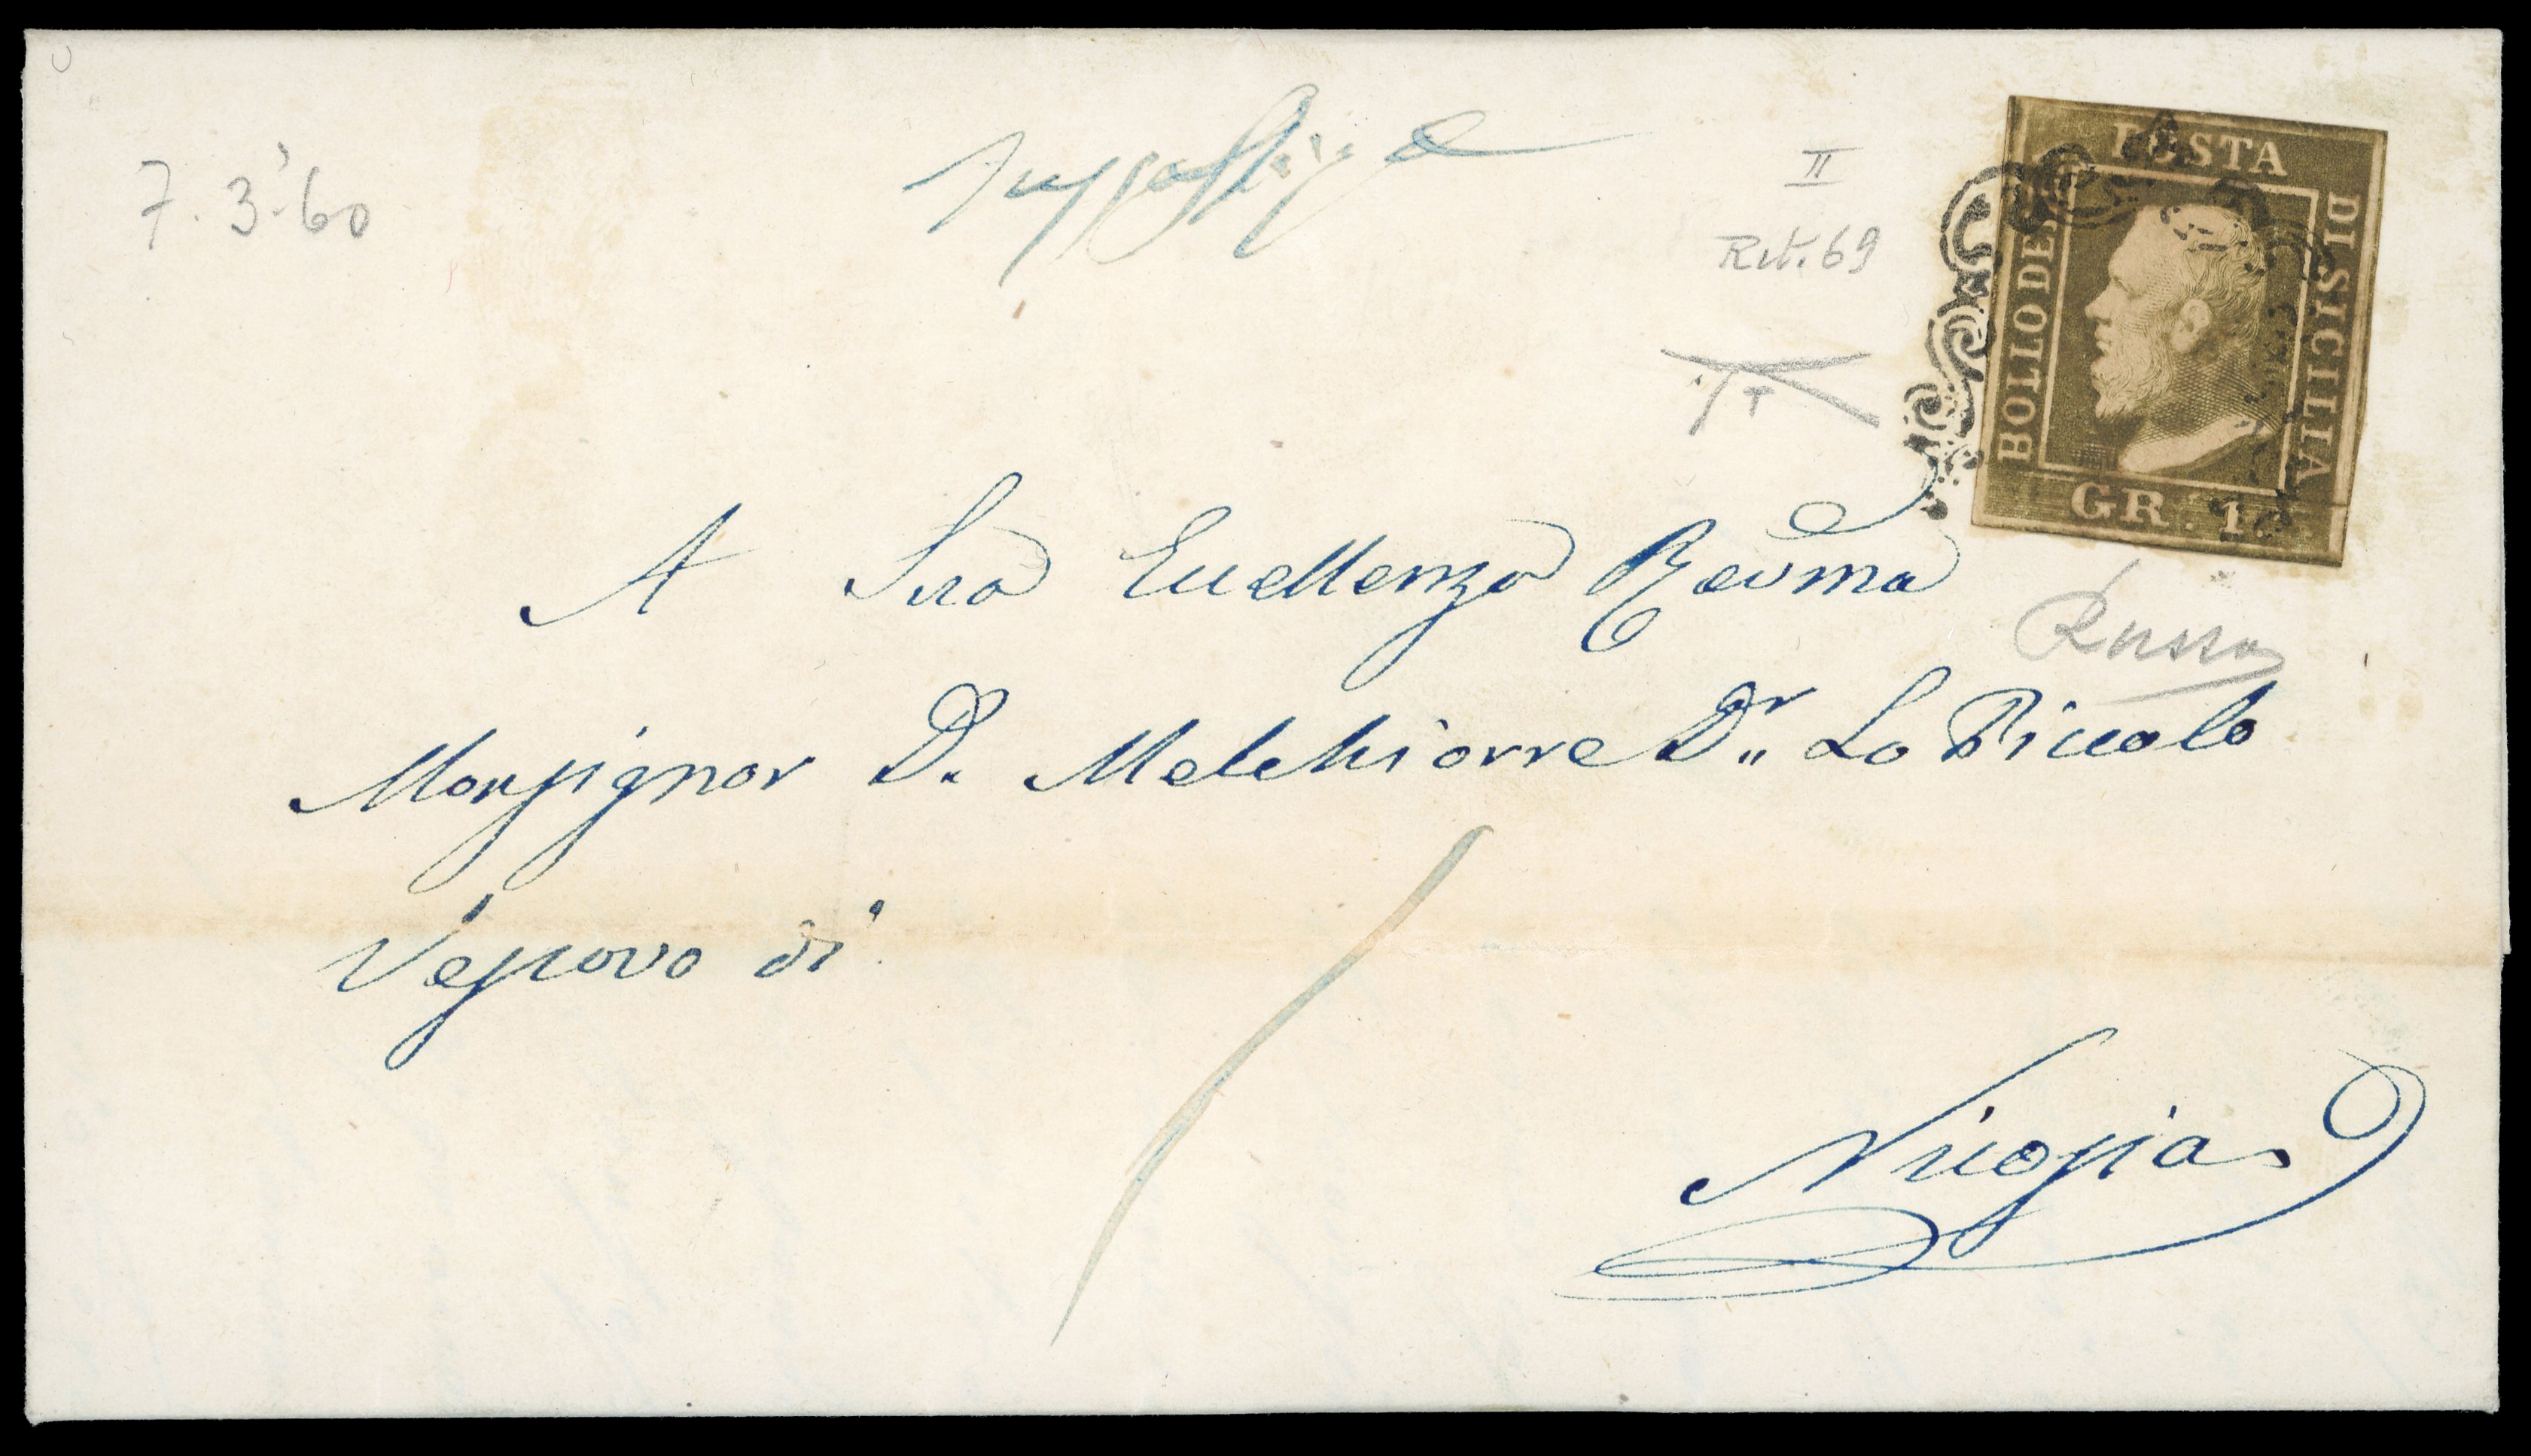 7. 3. 60
II
Rit. 69
POSTA
DI SICILIA
BOLLO DELLA
GR. 1
A Sua Eccellenza Revma
Russo
Monsignor D. Melchiorre Dr. Lo Piccolo
Vescovo di
Nicosia